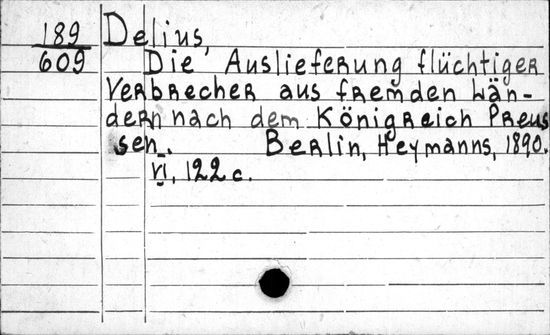 189 Delius,
609 Die Auslieferung flüchtiger
Verbrecher aus fremden Län-
dern nach dem Königreich Preus
sen. Berlin, Heymanns, 1890.
VI, 122 c.